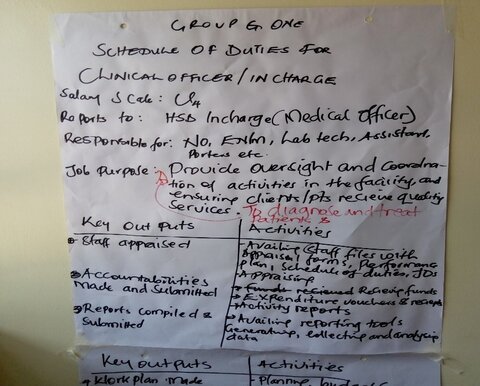 GROUP G ONE
SCHEDULE OF DUTIES FOR
CLINICAL OFFICER/INCHARGE
Salary Scale: U4
Reports to: HSD Incharge (Medical Officer)
Responsible for: NO, EN/m, Lab tech, Assistant,
Porters etc.
Job Purpose: Provide oversight and Coordina-
tion of activities in the facility, and
ensuring clients/pts recieve quality
services. To diagnose and treat
Patients &
Key outputs Activities
Staff appraised Availing Staff files with
Appraisal forms, Performance
plan, Schedules of duties, JDs
Appraising
Accountabilities Funds recieved Recieving funds
Made and Submitted Expenditure vouchers & reciepts
Activity reports
Reports compiled & Availing reporting tools
Submitted Generating, collecting and analysing
data
Key outputs Activities
Workplan made Planning